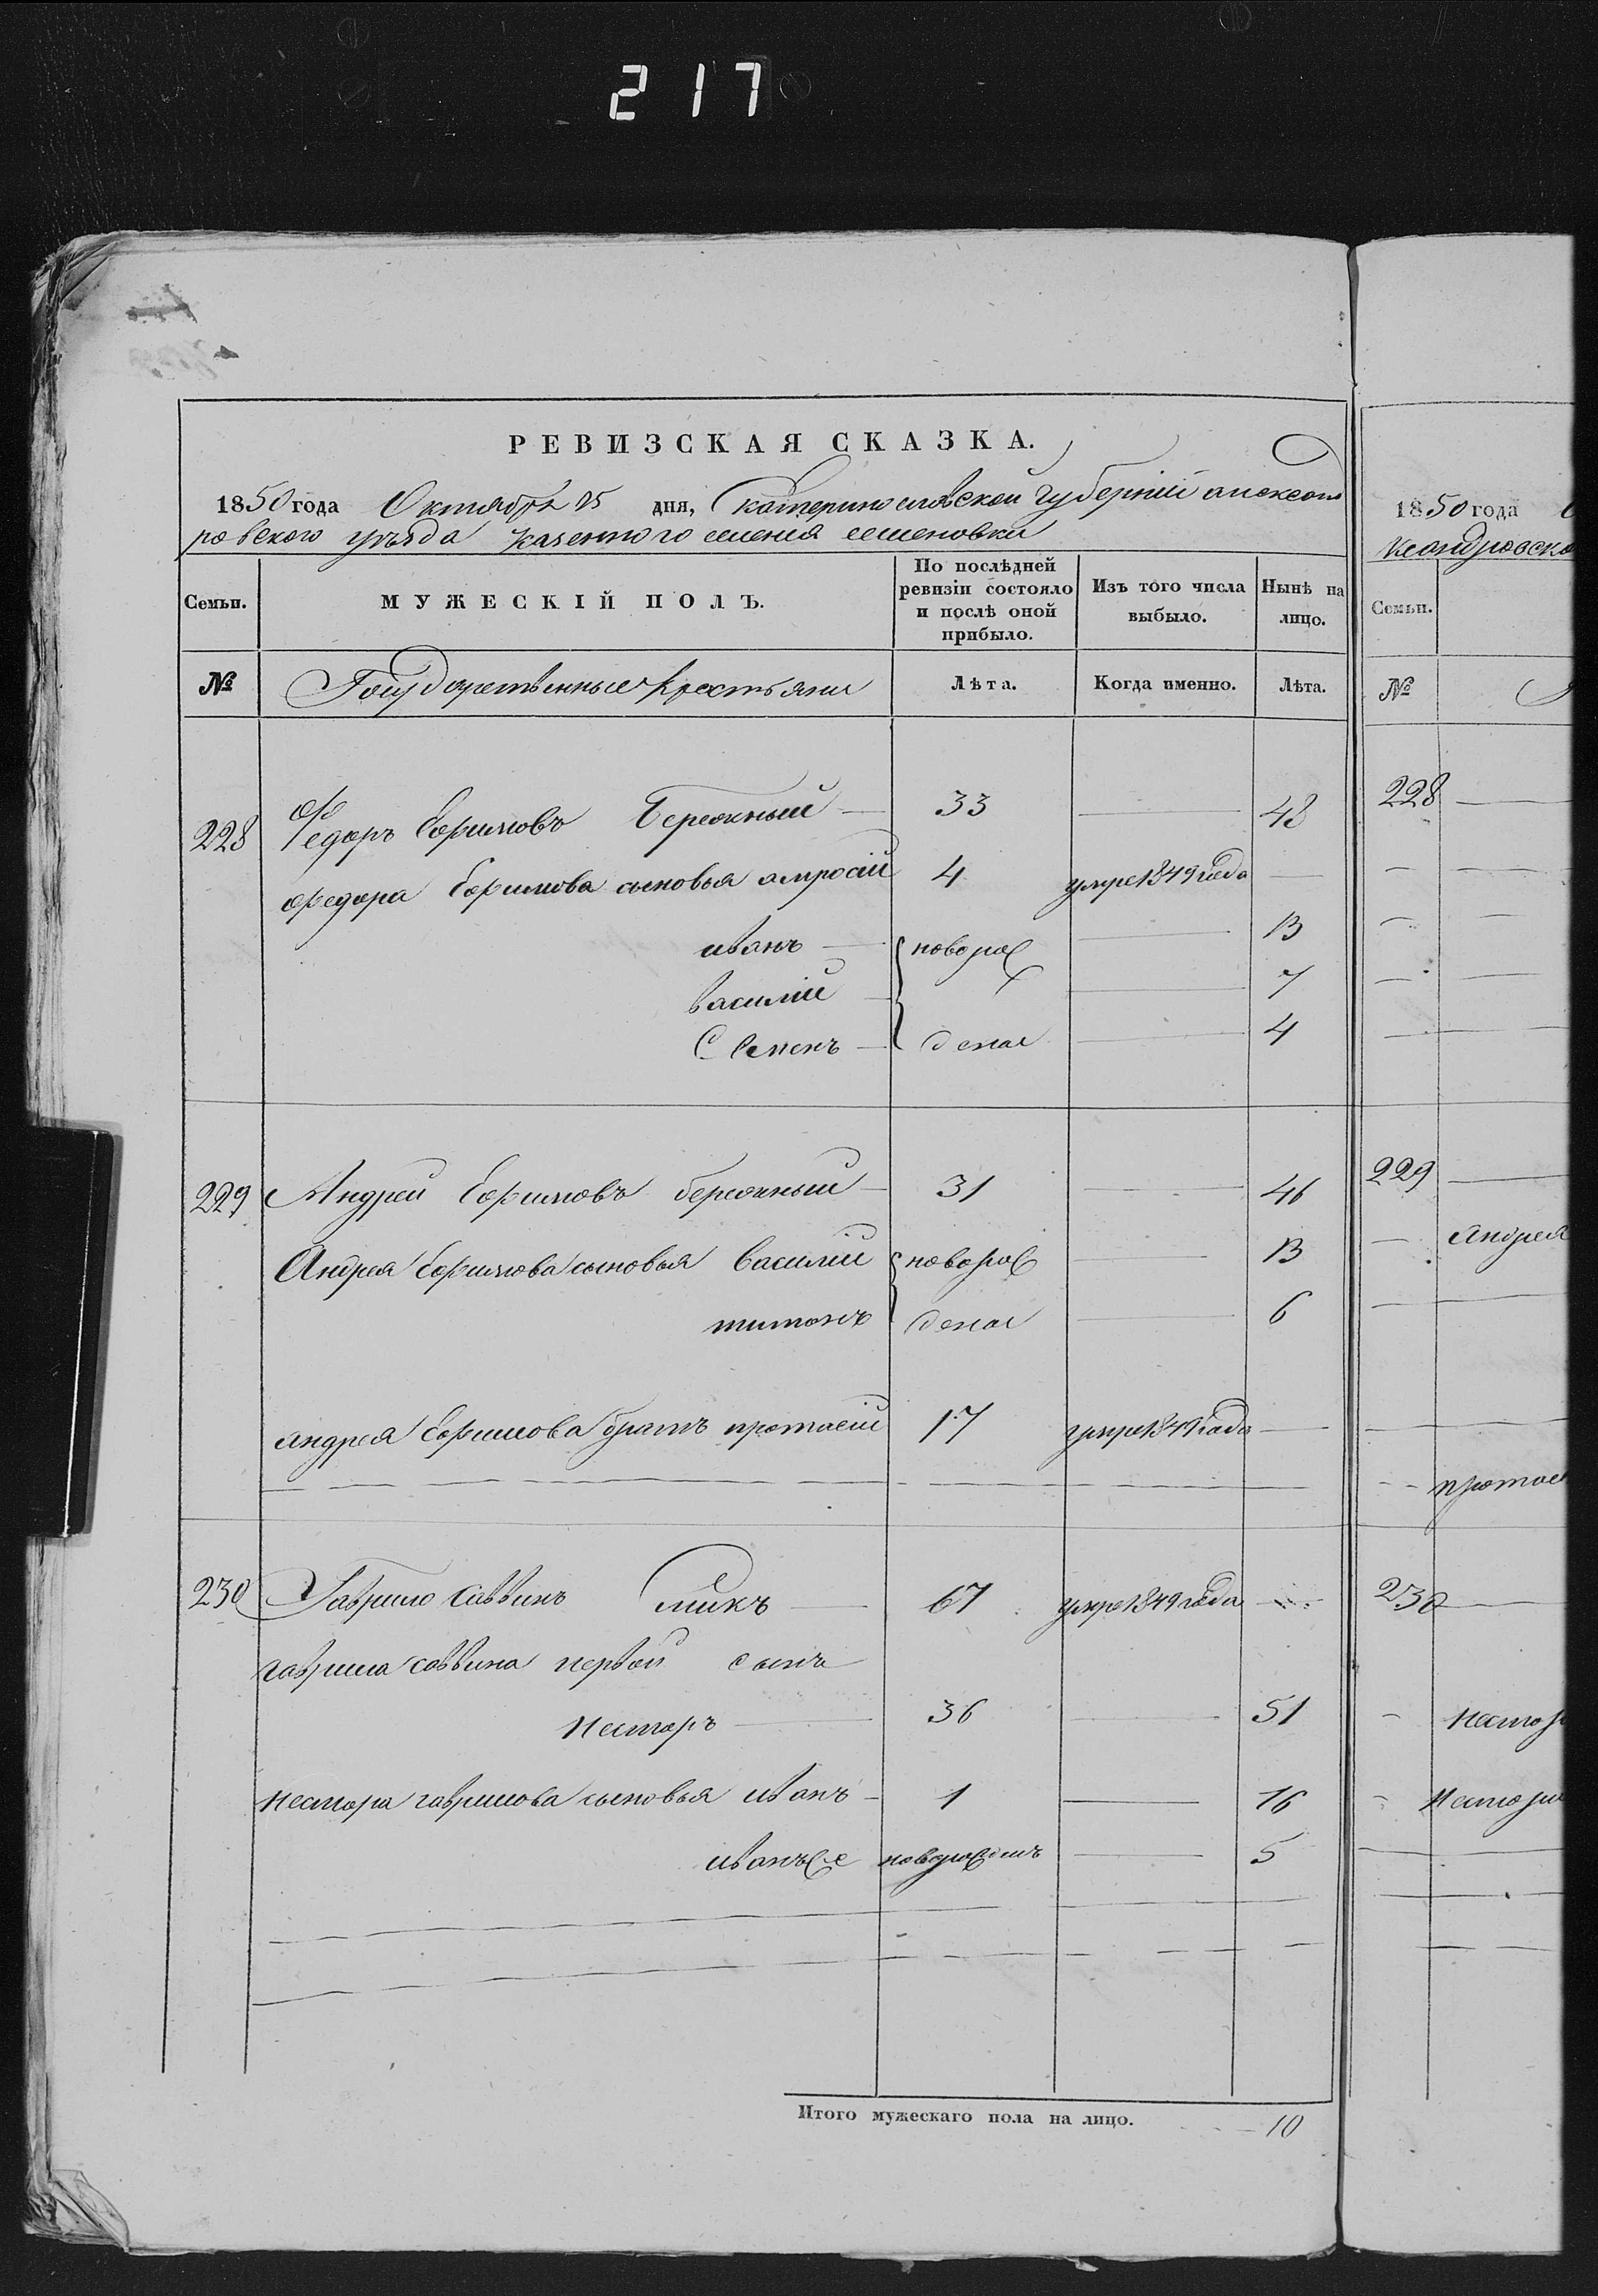 217
РЕВИЗСКАЯ СКАЗКА.
1850 года Октября 25 дня, Екатеринославской Губерніи александ
ровского уѣзда казенного селенія семеновки
Семьи. МУЖЕСКІЙ ПОЛЪ. По послѣдней ревизіи состояло и послѣ оной прибыло. Изъ того числа выбыло. Нынѣ на лицо.
№ Государственные Крестьяни Лѣта. Когда именно. Лѣта.
228 Федоръ Ефимовъ Бережный 33 48
федора Ефимова сыновья амросій 4 умре 1849 года
иванъ новорож 13
василій 7
Семенъ дены 4
229 Андрей Ефимовъ бережный 31 46
Андрея Ефимова сыновья василій новорож 13
титанъ дены 6
андрея Ефимова братъ протасій 17 умре 1849 года
230 Гаврило Саввинъ 67 умре 1849 года
гаврила саввина первой сынъ
Несторъ 36 51
нестора гаврилова сыновья иванъ 1 16
иванъ 2й новорожденъ 5
Итого мужескаго пола на лицо. 10
1850 года
ксандровско
Семьи.
№
228
229
андрея
протас
230
нестор
Нестора